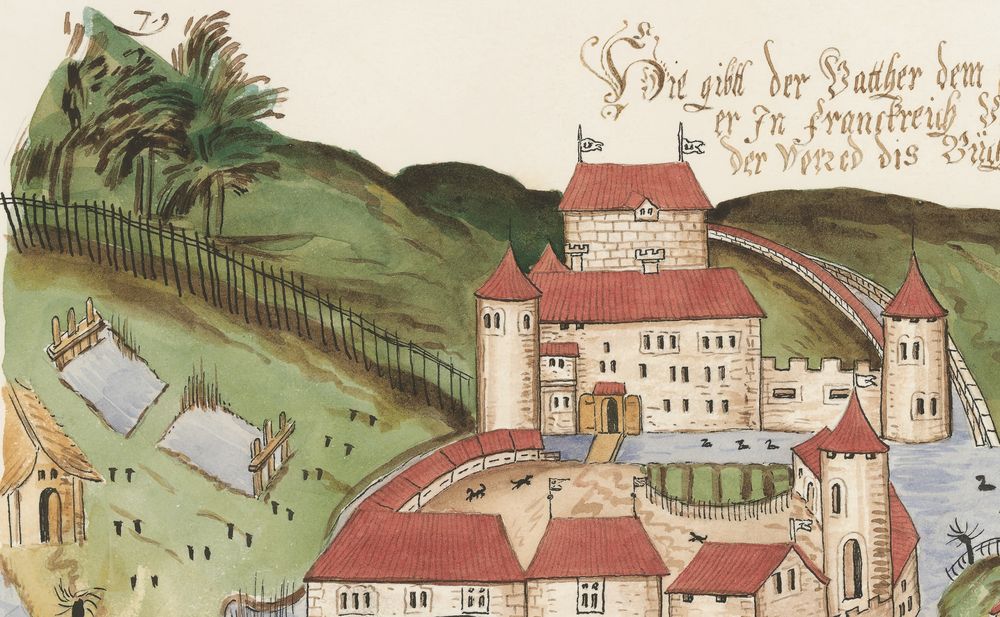 7·9
Hie gibtt der Vatther dem
er In franckreich
der Vorred dis